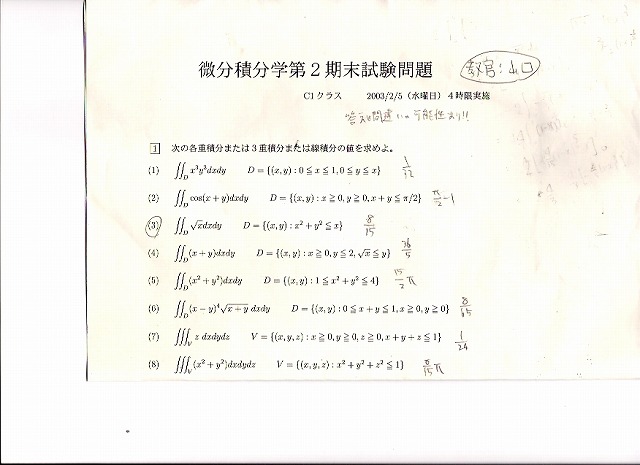 微分積分学第2期末試験問題 教官:山口
C1クラス 2003/2/5(水曜日)4時限実施
答えは間違いの可能性あり!!
1 次の各重積分または3重積分または線積分の値を求めよ。
(1) ∬_D x³y³dxdy D = {(x,y) : 0 ≦ x ≦ 1, 0 ≦ y ≦ x}
(2) ∬_D cos(x + y)dxdy D = {(x,y) : x ≧ 0, y ≧ 0, x + y ≦ π/2} π/2 − 1
(3) ∬_D √x dxdy D = {(x,y) : x² + y² ≦ x} 8/15
(4) ∬_D (x + y)dxdy D = {(x,y) : x ≧ 0, y ≦ 2, √x ≦ y} 36/5
(5) ∬_D (x² + y²)dxdy D = {(x,y) : 1 ≦ x² + y² ≦ 4} 15/2 π
(6) ∬_D (x − y)⁴√(x + y) dxdy D = {(x,y) : 0 ≦ x + y ≦ 1, x ≧ 0, y ≧ 0}
(7) ∭_V z dxdydz V = {(x,y,z) : x ≧ 0, y ≧ 0, z ≧ 0, x + y + z ≦ 1} 1/24
(8) ∭_V (x² + y²)dxdydz V = {(x,y,z) : x² + y² + z² ≦ 1} 8/15 π